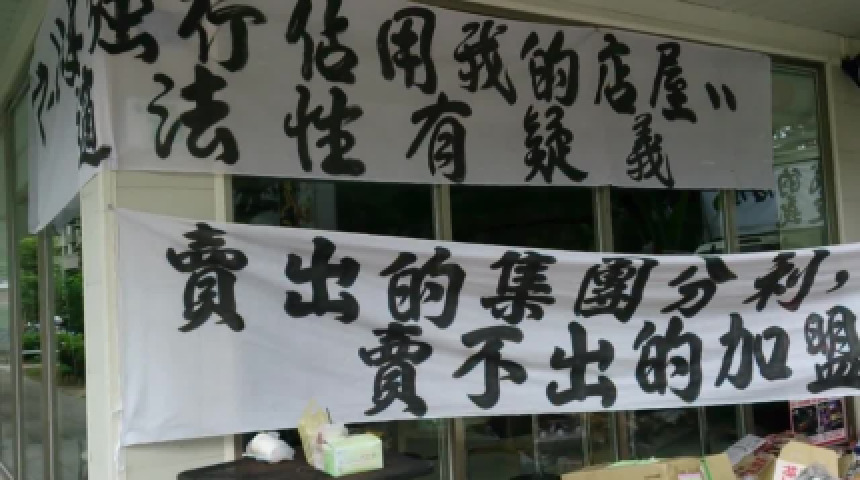 行佔用我的店屋"
法性有疑義
賣出的集團分利,
賣不出的加盟